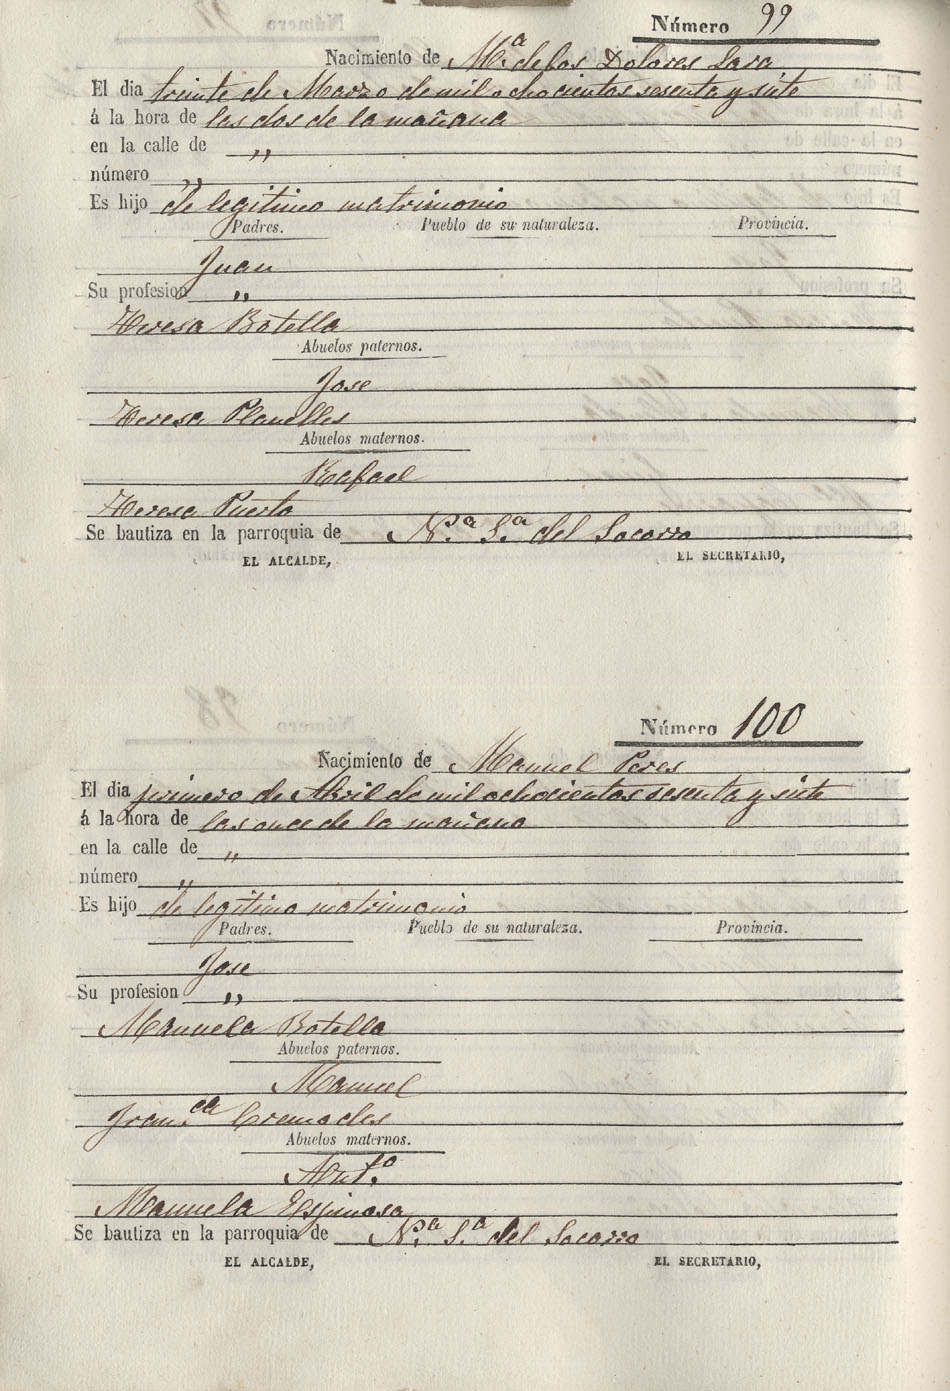 Número 99
Nacimiento de Mª de los Dolores Lara
El dia treinta de Marzo de mil ochocientos sesenta y siete
á la hora de las dos de la mañana
en la calle de „
número „
Es hijo de legitimo matrimonio
Padres. Pueblo de su naturaleza. Provincia.
Juan
Su profesion „
Teresa Botella
Abuelos paternos.
Jose
Teresa Planelles
Abuelos maternos.
Rafael
Teresa Puerto
Se bautiza en la parroquia de N.ª S.ª del Socorro
EL ALCALDE, EL SECRETARIO,
Número 100
Nacimiento de Manuel Peres
El dia primero de Abril de mil ochocientos sesenta y siete
á la hora de las once de la mañana
en la calle de „
número „
Es hijo de legitimo matrimonio
Padres. Pueblo de su naturaleza. Provincia.
Jose
Su profesion „
Manuela Botella
Abuelos paternos.
Manuel
Fran.ca Cremades
Abuelos maternos.
Ant.º
Manuela Espinosa
Se bautiza en la parroquia de N.ª S.ª del Socorro
EL ALCALDE, EL SECRETARIO,